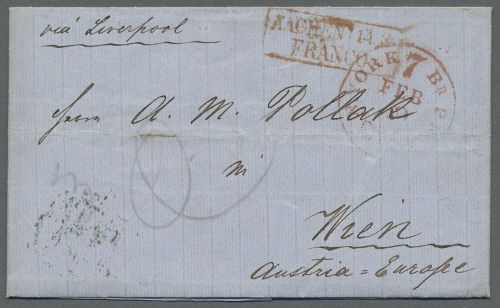 via Liverpool
AACHEN
FRANCO
YORK 7 BR P
FEB
Herrn A. M. Pollak
in
Wien
Austria=Europe